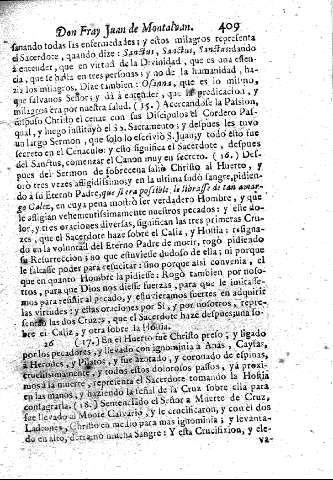 Don Fray Juan de Montalvan. 409
sanando todas las enfermedades; y estos milagros representa
el Sacerdote, quando dize: Sanctus, Sanctus, Sanctus: dando
à entender, que en virtud de la Divinidad, que es una essen-
cia, que se halla en tres personas; y no de la humanidad, ha-
zia los milagros. Dize tambien: Osanna, que es lo mismo,
que salvanos Señor; y dà à entender, que predicacion, y
milagros era por nuestra salud. (15.) Acercandose la Passion,
dispuso Christo el cenar con sus Discipulos el Cordero Pas-
qual, y luego instituyò el SS. Sacramento; y despues les tuvo
un largo Sermon, que solo lo escriviò S. Juan; y todo esto fue
secreto en el Cenaculo: y esto significa el Sacerdote, despues
del Sanctus, comenzar el Canon muy en secreto. (16.) Des-
pues del Sermon de sobrecena saliò Christo al Huerto, y
orò tres vezes afligidissimo; y en la ultima sudò sangre, pidien-
do à su Eterno Padre, que si era possible, le librasse de tan amar-
go Caliz, en cuya pena mostrò ser verdadero Hombre, y que
le afligian vehementissimamente nuestros pecados: y este do-
lor, y tres oraciones diversas, significan las tres primeras Cru-
zes, que el Sacerdote haze sobre el Caliz, y Hostia: resigna-
do en la voluntad del Eterno Padre de morir, rogò pidiendo
su Resurreccion; no que estuviesse dudoso de ella; ni porque
le faltasse poder para resucitar: sino porque assi convenia, el
que en quanto Hombre la pidiesse: Rogò tambien por noso-
tros, para que Dios nos diesse fuerzas, para que le imitasse-
mos para resistir al pecado, y estuvieramos fuertes en adquirir
las virtudes: y estas oraciones por Sì, y por nosotros, repre-
sentan las dos Cruzes, que el Sacerdote haze despues; una so-
bre el Caliz, y otra sobre la Hostia.
26 (17.) En el Huerto fue Christo preso; y ligado
por los pecadores, y llevado con ignominia à Anàs, Cayfas,
à Herodes, y Pilatos, y fue azotado, y coronado de espinas,
cruelissimamente, y todos estos dolorosos passos, yà proxi-
mos à la muerte, representa el Sacerdote tomando la Hostia
en las manos, y haziendo la señal de la Cruz sobre ella para
consagrarla. (18.) Sentenciado el Señor à Muerte de Cruz,
fue llevado al Monte Calvario, y le crucificaron, y con el dos
Ladrones, Christo en medio para mas ignominia; y levanta-
do en alto, derramò mucha Sangre: Y esta Crucifixion, y ele-
va-